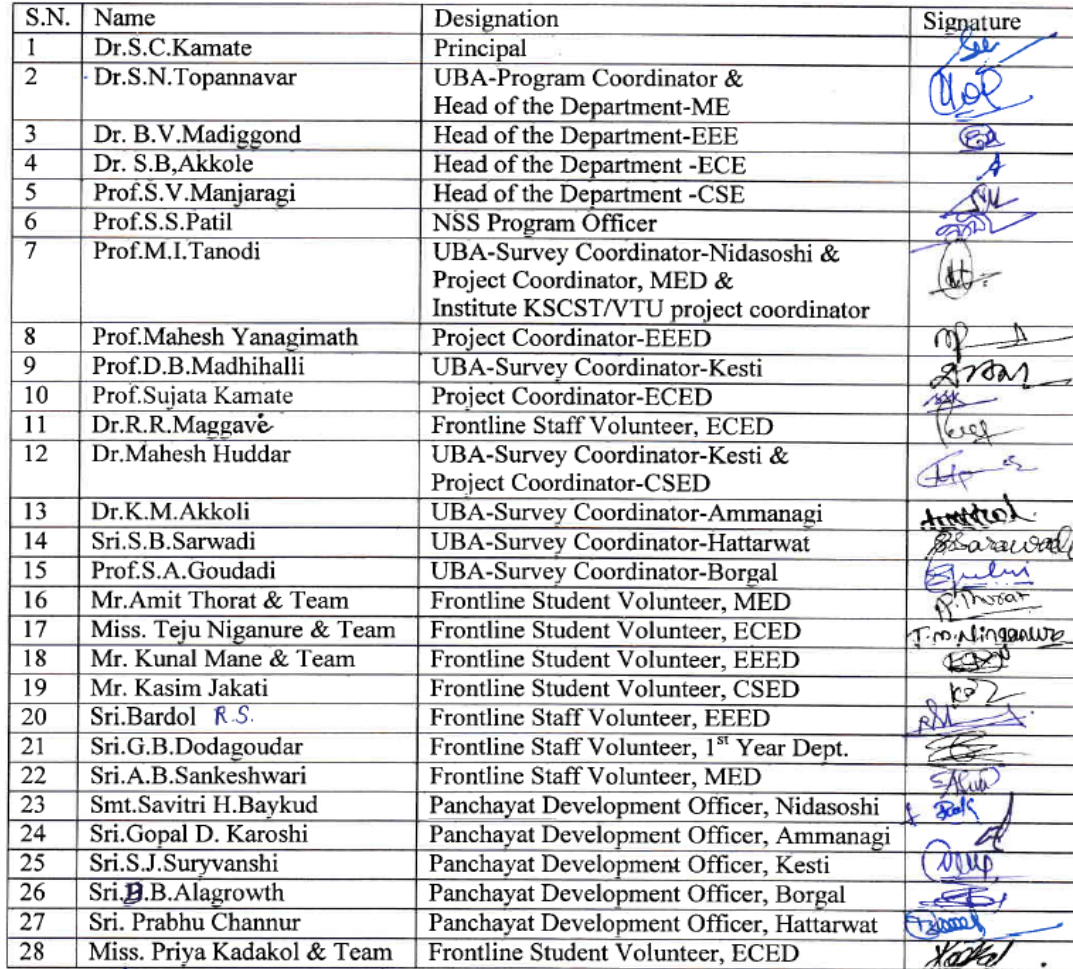 S.N. Name Designation Signature
1 Dr.S.C.Kamate Principal
2 Dr.S.N.Topannavar UBA-Program Coordinator &
Head of the Department-ME
3 Dr. B.V.Madiggond Head of the Department-EEE
4 Dr. S.B,Akkole Head of the Department -ECE
5 Prof.S.V.Manjaragi Head of the Department -CSE
6 Prof.S.S.Patil NSS Program Officer
7 Prof.M.I.Tanodi UBA-Survey Coordinator-Nidasoshi &
Project Coordinator, MED &
Institute KSCST/VTU project coordinator
8 Prof.Mahesh Yanagimath Project Coordinator-EEED
9 Prof.D.B.Madhihalli UBA-Survey Coordinator-Kesti
10 Prof.Sujata Kamate Project Coordinator-ECED
11 Dr.R.R.Maggavé Frontline Staff Volunteer, ECED
12 Dr.Mahesh Huddar UBA-Survey Coordinator-Kesti &
Project Coordinator-CSED
13 Dr.K.M.Akkoli UBA-Survey Coordinator-Ammanagi
14 Sri.S.B.Sarwadi UBA-Survey Coordinator-Hattarwat
15 Prof.S.A.Goudadi UBA-Survey Coordinator-Borgal
16 Mr.Amit Thorat & Team Frontline Student Volunteer, MED
17 Miss. Teju Niganure & Team Frontline Student Volunteer, ECED T.M.Ninganure
18 Mr. Kunal Mane & Team Frontline Student Volunteer, EEED
19 Mr. Kasim Jakati Frontline Student Volunteer, CSED
20 Sri.Bardol R.S. Frontline Staff Volunteer, EEED
21 Sri.G.B.Dodagoudar Frontline Staff Volunteer, 1st Year Dept.
22 Sri.A.B.Sankeshwari Frontline Staff Volunteer, MED
23 Smt.Savitri H.Baykud Panchayat Development Officer, Nidasoshi
24 Sri.Gopal D. Karoshi Panchayat Development Officer, Ammanagi
25 Sri.S.J.Suryvanshi Panchayat Development Officer, Kesti
26 Sri.B.B.Alagrowth Panchayat Development Officer, Borgal
27 Sri. Prabhu Channur Panchayat Development Officer, Hattarwat
28 Miss. Priya Kadakol & Team Frontline Student Volunteer, ECED